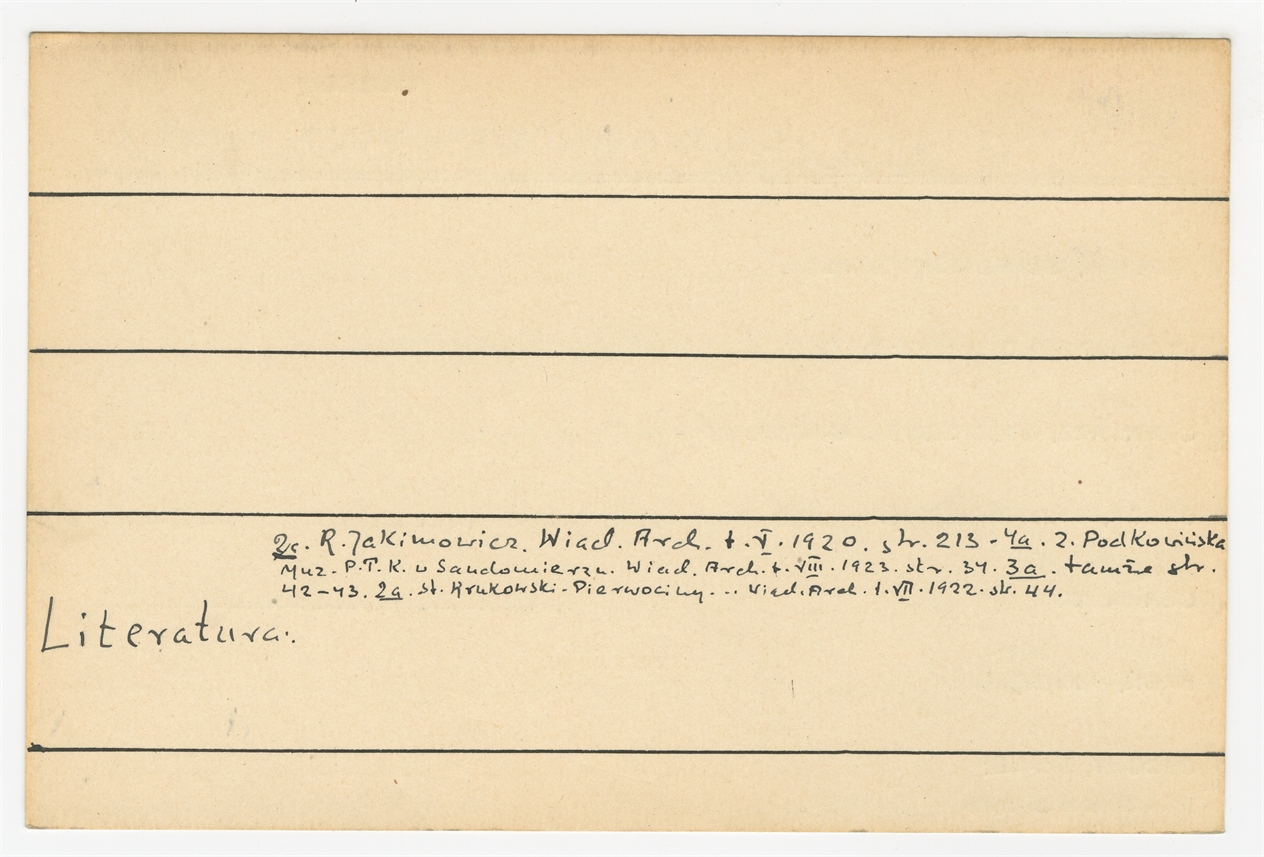 2c. R. Jakimowicz. Wiad. Arch. t. V. 1920. str. 213 - 4a. Z. Podkowińska
Muz. P.T.K. w Sandomierzu. Wiad. Arch. t. VIII. 1923. str. 34. 3a. tamże str.
42-43. 2a. St. Krukowski. Pierwociny... Wiad. Arch. t. VII. 1922. str. 44.
Literatura: